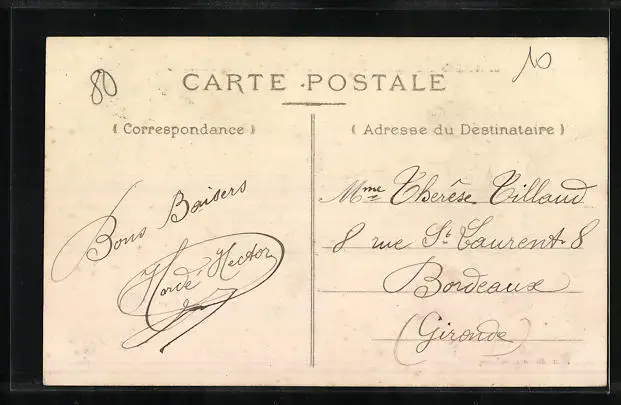 80
10
CARTE POSTALE
( Correspondance )
( Adresse du Destinataire )
Bons Baisers
Hordé Hector
Mme Therêse Tillaud
8 rue St Laurent 8
Bordeaux
(Gironde)